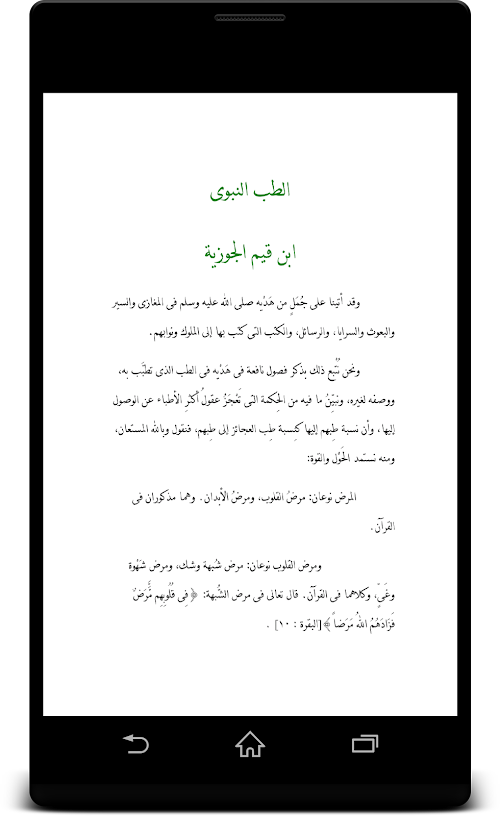 الطب النبوى
ابن قيم الجوزية
وقد أتينا على جُمَلٍ من هَدْيِه صلى الله عليه وسلم فى المغازى والسير
والبعوث والسرايا، والرسائل، والكتب التى كتب بها إلى الملوك ونوابهم.
ونحن نُتْبع ذلك بذكر فصول نافعة فى هَدْيِه فى الطب الذى تطبَّب به،
ووصفه لغيره، ونبيِّنُ ما فيه من الحِكمة التى تَعْجَزُ عقولُ أكثرِ الأطباء عن الوصول
إليها، وأن نسبة طِبهم إليها كنِسبة طِب العجائز إلى طِبهم، فنقول وبالله المستعان،
ومنه نستمد الحَوْل والقوة:
المرض نوعان: مرضُ القلوب، ومرضُ الأبدان. وهما مذكوران فى
القرآن.
ومرض القلوب نوعان: مرض شُبهة وشك، ومرض شَهْوة
وغَىٍّ، وكلاهما فى القرآن. قال تعالى فى مرض الشُّبهة: ﴿فِى قُلُوبِهِم مَّرَضٌ
فَزَادَهُمُ اللهُ مَرَضاً﴾[البقرة : ١٠] .